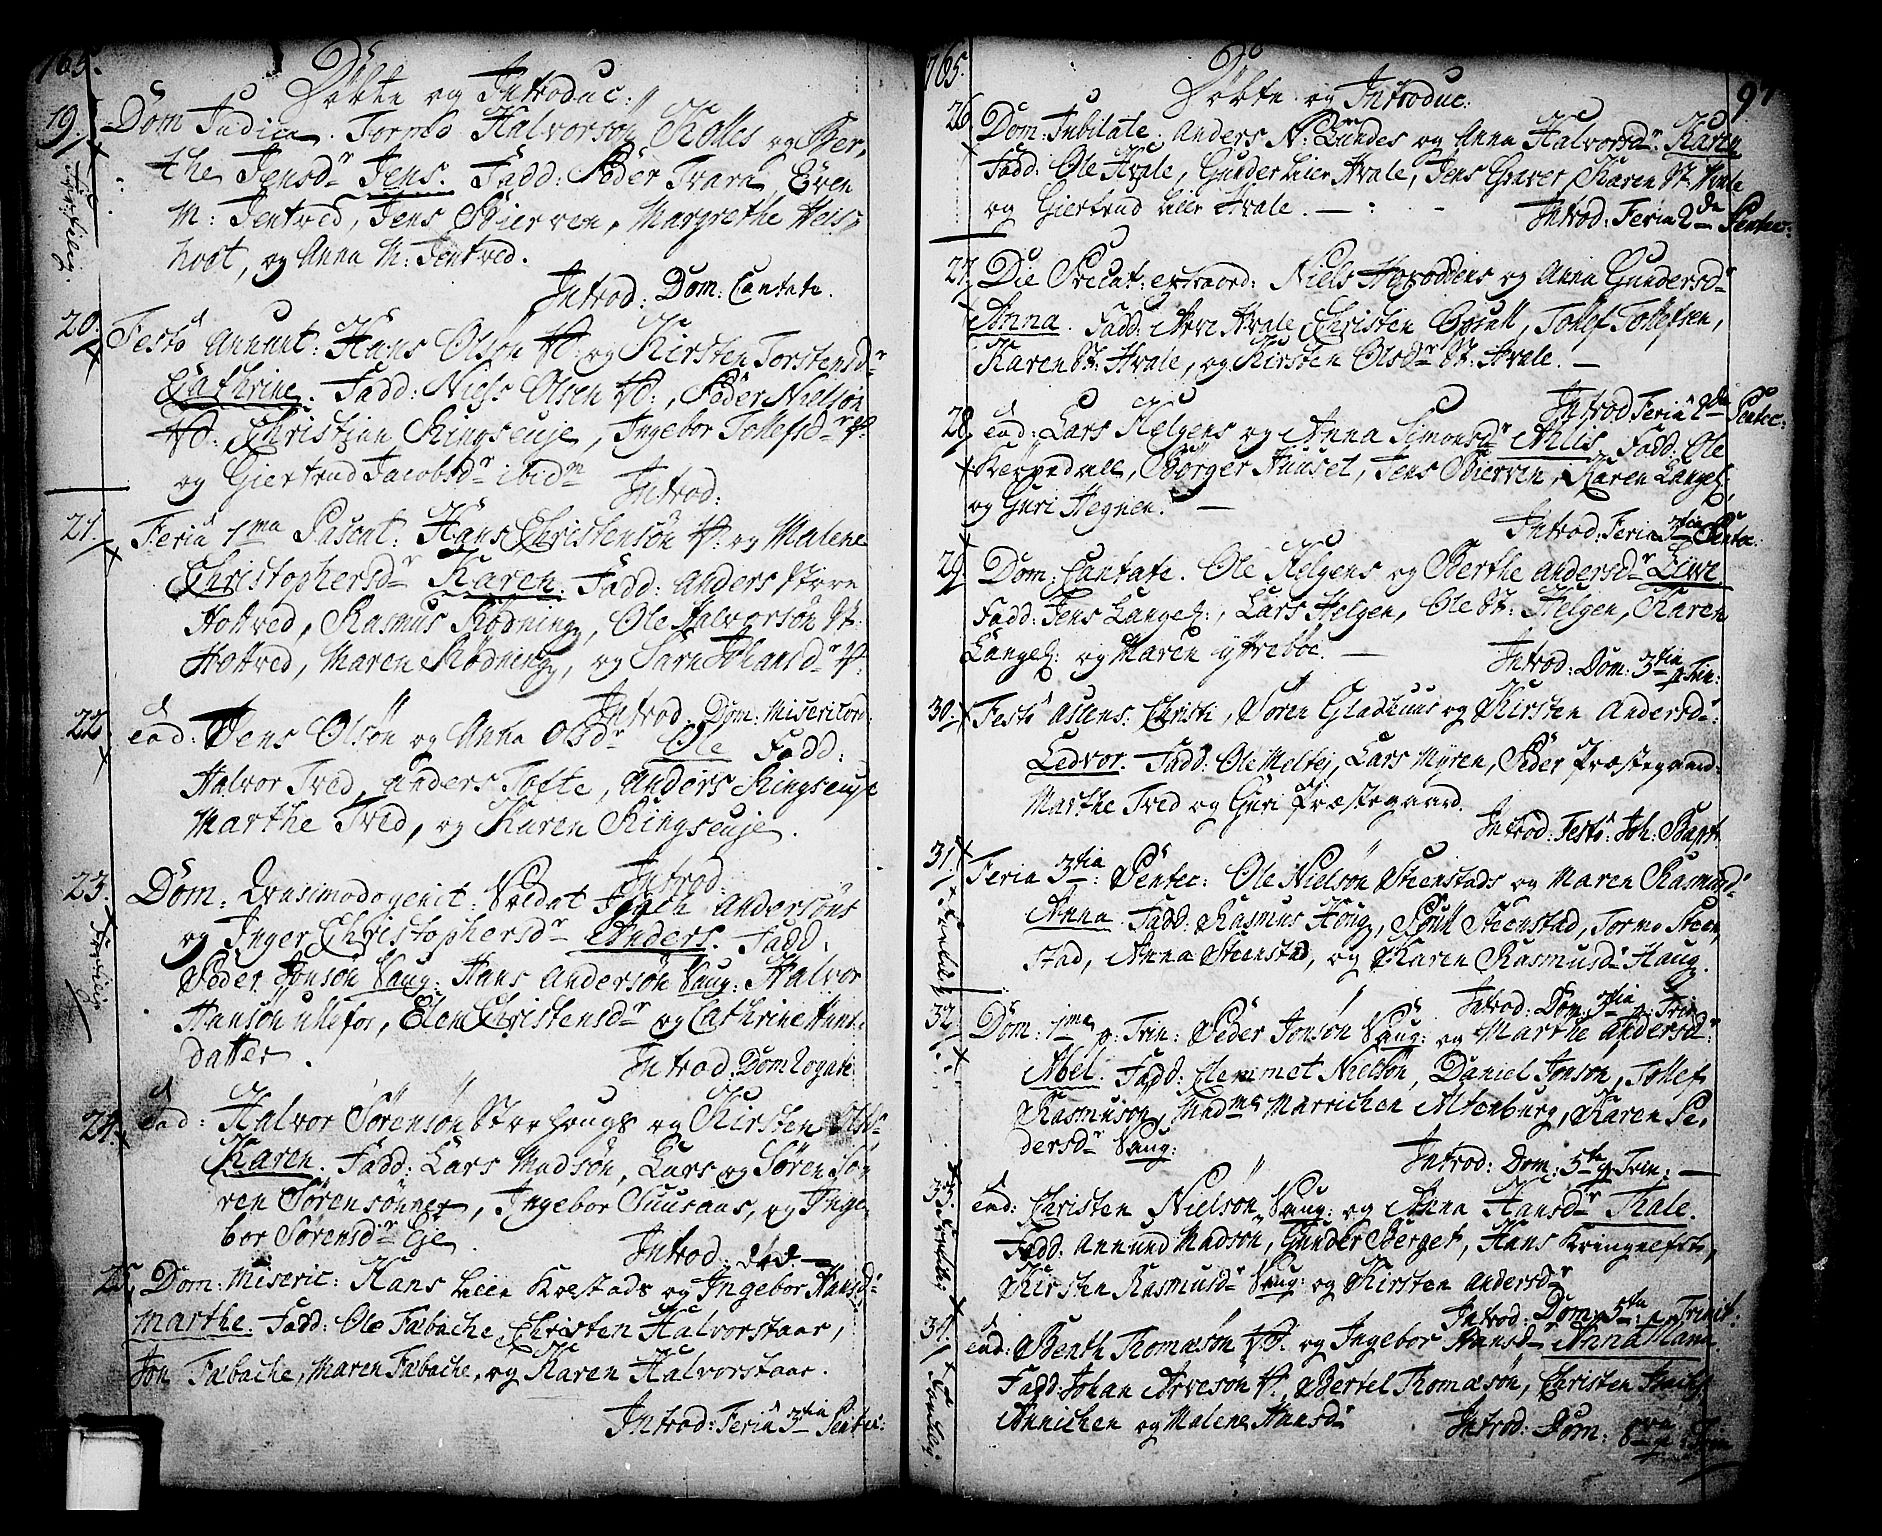 1765.
Döbte og Introduc:
19. Dom Judica. Tormo Halvorsön Kolles og Ber,
the Jensdr Jens. Fadd: Peder Tvara, Even
M: Jentved, Jens Bierven, Margrethe Heis,
holt, og Anna M: Jentved.
Introd: Dom: Cantate.
20. Festo Anunt: Hans Olsön og Kirsten Torstensdr
Cathrine. Fadd: Niels Olsen, Peder Nielsön
Christian Ringseuje, Ingebor Tollefsdr
og Giertrud Jacobsdr ibidm Introd:
21. Feria 1ma Pascat: Hans Christensön og Malene
Christophersdr Karen. Fadd: Anders Store
Holtved, Rasmus Rödning, Ole Halvorsön St:
Holtved, Maren Rödning, og Sara Johansdr
Introd. Dom: Misericord:
22 ead: Jens Olsön og Anna Olsdr Ole Fadd:
Halvor Tved, Anders Tofte, Anders Ringseuje
Marthe Tved, og Karen Ringseuje.
Introd:
23. Dom: Qvasimodogenit: Vedat Anderssöns
og Inger Christophersdr Anders. Fadd:
Peder Jonsön Vaug: Hans Andersön Vaug: Halvor
Hansön Ullefos, Elen Christensdr og Cathrine
datter. Introd: Dom Rogate
24. ead: Halvor Sörensön Storhougs og Kirsten Olsdr
Karen. Fadd: Lars Madsön, Lars og Sören Sö
ren Sörensönner, Ingebor Suusaas, og Inge
bor Sörensdr Eje. Introd: ded.
25. Dom: Miseric: Hans Leie Krestads og Ingebor Hansdr
Marthe. Fadd: Ole Fabache, Christen Halvorstaae,
Jon Fabache, Maren Fabache, og Karen Halvorstaae.
Introd: Feria 3tia Pentec:
1765. 97
Döbte og Introduc:
26. Dom: Jubilate. Anders N: Lundes og Anna Halvorsdr: Karen
Fadd: Ole Hvale, Gunder Leie Hvale, Jens Graver, Karen St: Hvale
og Giertrud Lille Hvale. Introd: Feria 2da Pentec:
27. Die Precat: extraord: Niels Hoxoddens og Anna Gundersdr
Anna. Fadd: Arve Hvale, Christen, Tollef Tollefsen,
Karen St: Hvale, og Kirsten Olsdr St: Hvale.
Introd Feria 2da Pentec:
28. ead: Lars Helgens og Anna Simonsdr Ahlis. Fadd: Ole
Verpedalle, Börger Huuset, Jens Bierven, Karen Langef:
og Guri Hegnen. Introd: Feria 3tia Pentec.
29. Dom: Cantate. Ole Helgens og Berthe Andersdr Live.
Fadd: Jens Langef:, Lars Helgen, Ole St: Helgen, Karen
Langef: og Maren yttreböe. Introd: Dom: 3tia p Trin:
30. Festo Assens: Christi, Sören Gladhuus og Kirsten Andersdr:
Ledvor. Fadd: Ole Meltej, Lars Myren, Peder Præstegaard:
Marthe Tved og Guri Præstegaard.
Introd: Festo: Joh: Bapt.
31. Feria 3tia: Pentec: Ole Nielsön Steenstads og Maren Rasmusdr
Anna. Fadd: Rasmus Houg, Poull Steenstad, Tormo Steen,
stad, Anna Steenstad, og Karen Rasmusdr Haug.
Introd: Dom 3tia p. Trin
32. Dom: 1ma p. Trin: Peder Jonsön Vaug: og Marthe Andersdr:
Abel. Fadd: Clemmet Nielsön, Daniel Jonsön, Tollef
Rasmusön, Madme Marrichen Altenburg, Karen Pe,
dersdr Vaug: Introd: Dom: 5ta p Trin:
33. ead: Christen Nielsön Vaug: og Anna Hansdr Thale.
Fadd: Annund Madsön, Gunder Berget, Hans Kringelfst,
Kirsten Rasmusdr Vaug: og Kirsten Andersdr
Introd: Dom: 5ta p Trinit:
34. ead: Benth Thomasön og Ingebor Hansdr Anna Maria.
Fadd: Johan Arvesön, Bertel Thomasön, Christen
Annichen og Malene Hansdr Introd: Dom: 6